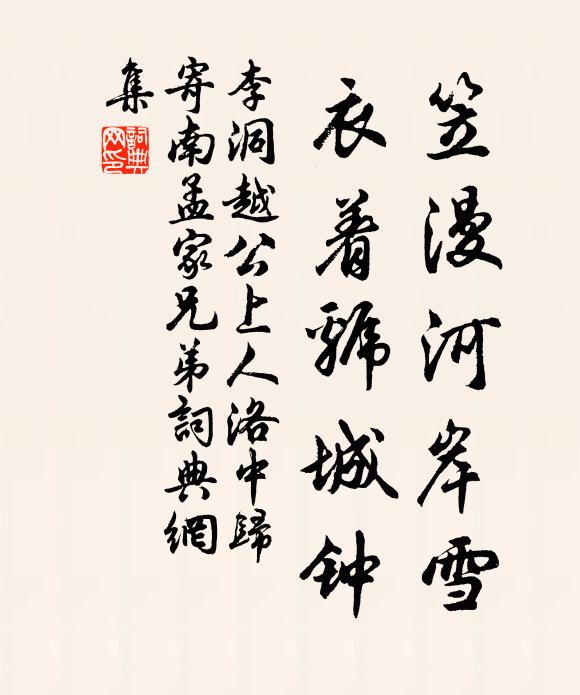 笠漫河岸雪
衣着虢城钟
李洞越公上人洛中歸
寄南孟家兄弟詞典網
集
詞典
网印